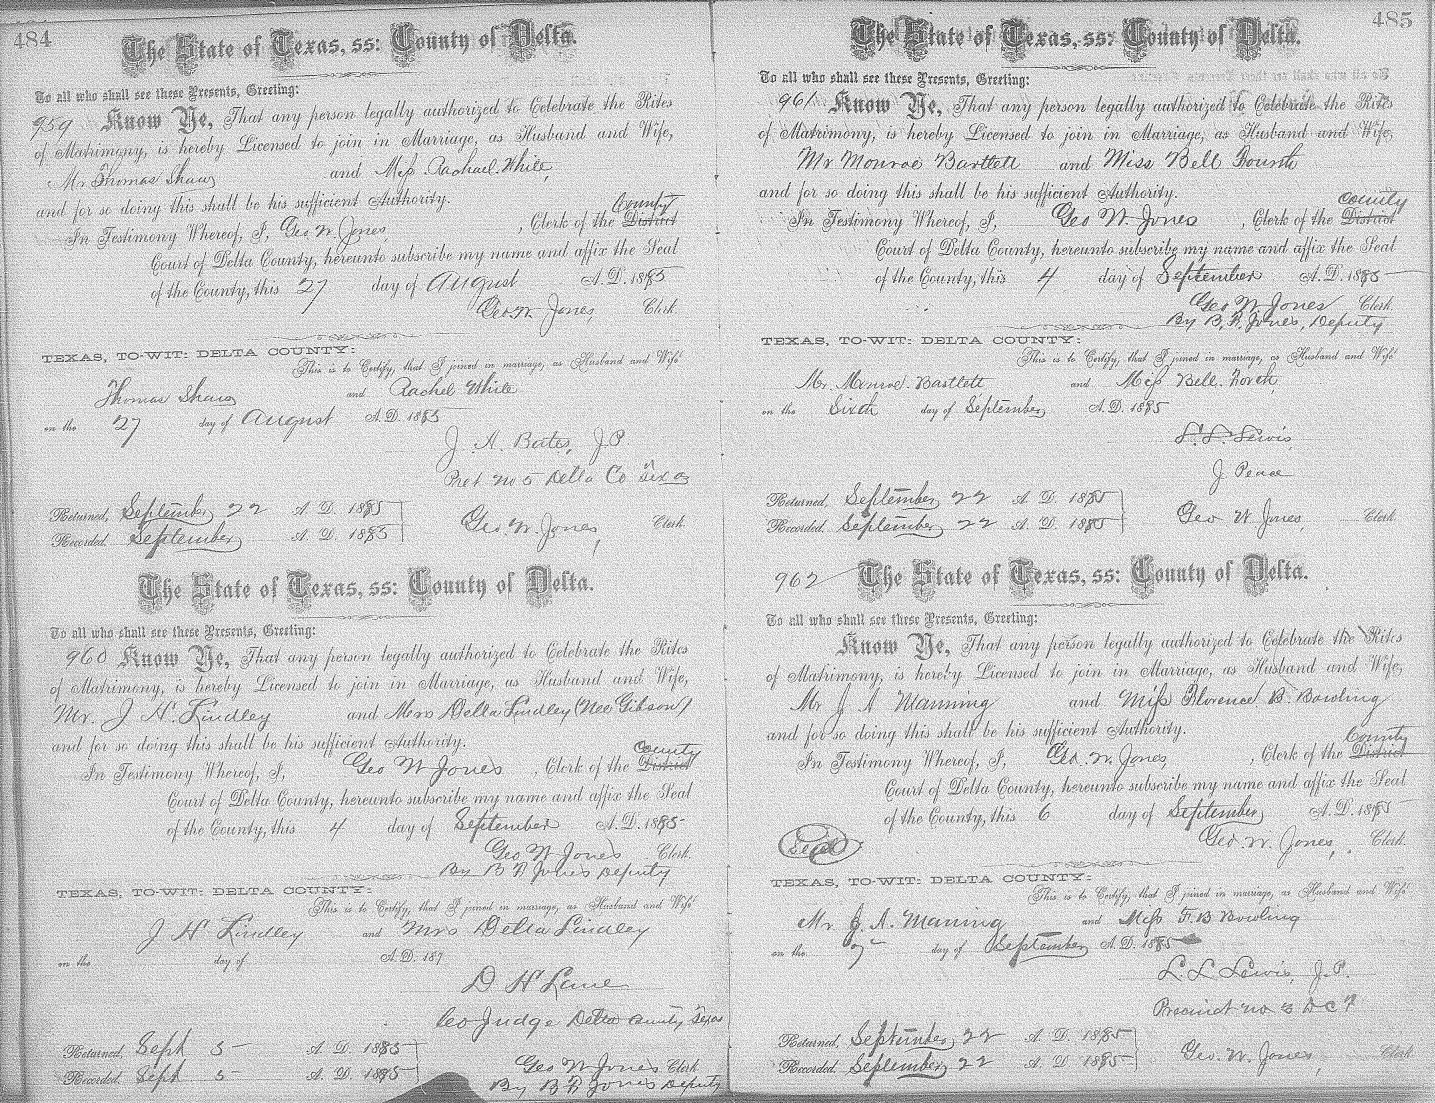 484
The State of Texas, ss: County of Delta.
To all who shall see these Presents, Greeting:
959 Know Ye, That any person legally authorized to Celebrate the Rites
of Matrimony, is hereby Licensed to join in Marriage, as Husband and Wife,
Mr Thomas Shaw and Miss Rachael White
and for so doing this shall be his sufficient Authority.
County
In Testimony Whereof, I, Geo W. Jones, Clerk of the District
Court of Delta County, hereunto subscribe my name and affix the Seal
of the County, this 27 day of August A. D. 1885
Geo. W. Jones, Clerk.
TEXAS, TO-WIT: DELTA COUNTY:
This is to Certify, that I joined in marriage, as Husband and Wife
Thomas Shaw and Rachel White
on the 27 day of August A. D. 1885
J. A. Bates, J.P.
Pret no 5 Delta Co Texas
Returned, September 22 A. D. 1885
Geo. W. Jones, Clerk
Recorded. September A. D. 1885
The State of Texas, ss: County of Delta.
To all who shall see these Presents, Greeting:
960 Know Ye, That any person legally authorized to Celebrate the Rites
of Matrimony, is hereby Licensed to join in Marriage, as Husband and Wife,
Mr. J H. Lindley and Mrs Della Lindley (Nee Gibson)
and for so doing this shall be his sufficient Authority.
County
In Testimony Whereof, I, Geo W Jones, Clerk of the District
Court of Delta County, hereunto subscribe my name and affix the Seal
of the County, this 4 day of September A. D. 1885
Geo W Jones Clerk.
By B F Jones Deputy
TEXAS, TO-WIT: DELTA COUNTY:
This is to Certify, that I joined in marriage, as Husband and Wife
J H Lindley and Mrs Della Lindley
on the day of A. D. 187
D H Lane
Co Judge Delta County Texas
Returned, Sept 5 A. D. 1885
Geo W Jones Clerk
Recorded. Sept 5 A. D. 1885
By B F Jones Deputy
485
The State of Texas, ss: County of Delta.
To all who shall see these Presents, Greeting:
961 Know Ye, That any person legally authorized to Celebrate the Rites
of Matrimony, is hereby Licensed to join in Marriage, as Husband and Wife,
Mr Monroe Bartlett and Miss Bell Fourth
and for so doing this shall be his sufficient Authority.
County
In Testimony Whereof, I, Geo W. Jones, Clerk of the District
Court of Delta County, hereunto subscribe my name and affix the Seal
of the County, this 4 day of September A. D. 1885
Geo W Jones Clerk.
By B. F. Jones, Deputy
TEXAS, TO-WIT: DELTA COUNTY:
This is to Certify, that I joined in marriage, as Husband and Wife
Mr. Monroe Bartlett and Miss Bell. Forth
on the Sixth day of September A. D. 1885
L. L. Lewis
J Peace
Returned, September 22 A. D. 1885
Geo W Jones, Clerk.
Recorded. September 22 A. D. 1885
962 The State of Texas, ss: County of Delta.
To all who shall see these Presents, Greeting:
Know Ye, That any person legally authorized to Celebrate the Rites
of Matrimony, is hereby Licensed to join in Marriage, as Husband and Wife,
Mr J A Manning and Miss Florence B. Bowling
and for so doing this shall be his sufficient Authority.
County
In Testimony Whereof, I, Geo. W. Jones, Clerk of the District
Court of Delta County, hereunto subscribe my name and affix the Seal
of the County, this 6 day of September A. D. 1885
Seal Geo. W. Jones, Clerk.
TEXAS, TO-WIT: DELTA COUNTY:
This is to Certify, that I joined in marriage, as Husband and Wife
Mr. J. A. Maning and Miss F. B Bowling
on the 7 day of September A. D. 1885
L L Lewis, J.P.
Precinct no 3 D C T
Returned, September 22 A. D. 1885
Geo. W. Jones, Clerk
Recorded. September 22 A. D. 1885